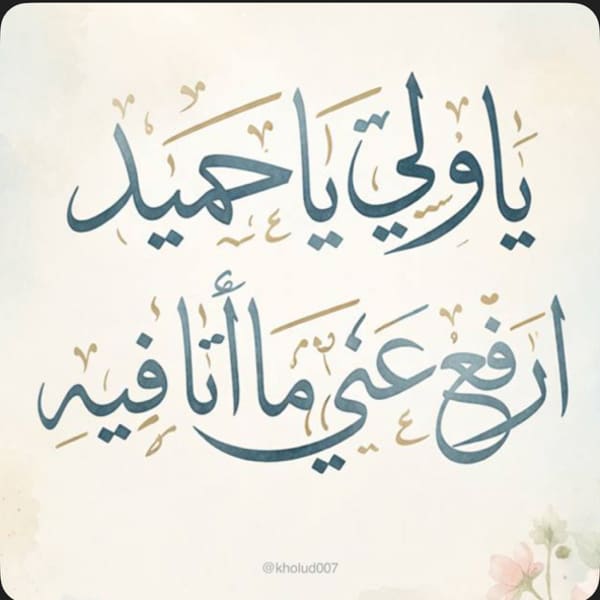 يَا وَلِيّ يَا حَمِيد
ارفَع عَنِّي مَا أَنَا فِيهِ
@kholud007